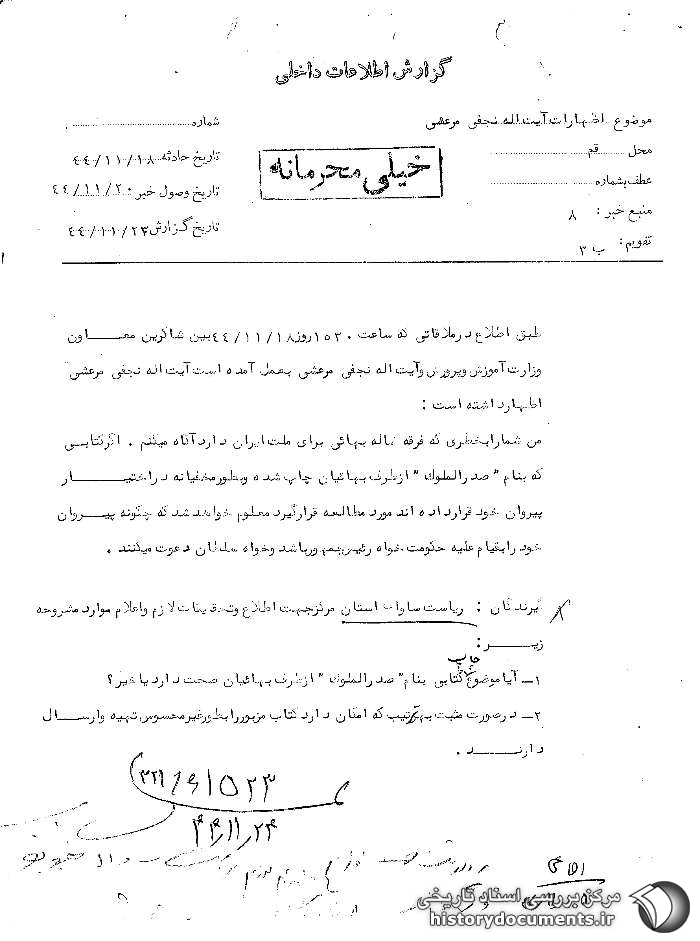 گزارش اطلاعات داخلی
موضوع اظهارات آیت اله نجفی مرعشی
شماره
محل قم
خیلی محرمانه
تاریخ حادثه ٤٤/١١/١٨
عطف بشماره
تاریخ وصول خبر ٤٤/١١/٢٠
منبع خبر : ٨
تاریخ گزارش ٤٤/١١/٢٣
تقویم : ب ٣
طبق اطلاع در ملاقاتی که ساعت ١٥٣٠ روز ٤٤/١١/١٨ بین شاکرین معاون
وزارت آموزش و پرورش و آیت اله نجفی مرعشی بعمل آمده است آیت اله نجفی مرعشی
اظهار داشته است :
من شما را بخطری که فرقه ضاله بهائی برای ملت ایران دارد آگاه میکنم . اگر کتابی
که بنام " صدر الملوک " از طرف بهائیان چاپ شده و بطور مخفیانه در اختیار
پیروان خود قرار داده اند مورد مطالعه قرار گیرد معلوم خواهد شد که چگونه پیروان
خود را بقیام علیه حکومت خواه رئیس جمهور باشد و خواه سلطان دعوت میکنند .
گیرندگان : ریاست ساواک استان مرکز جهت اطلاع و تحقیقات لازم و اعلام موارد مشروحه
زیر :
١ـ آیا موضوع چاپ کتابی بنام " صدر الملوک " از طرف بهائیان صحت دارد یا خیر ؟
٢ـ در صورت مثبت بهر ترتیب که امکان دارد کتاب مزبور را بطور غیر محسوس تهیه و ارسال
دارند .
٣٢١/٦١٥٢٣
٤٤/١١/٢٤
مرکز بررسی اسناد تاریخی
historydocuments.ir